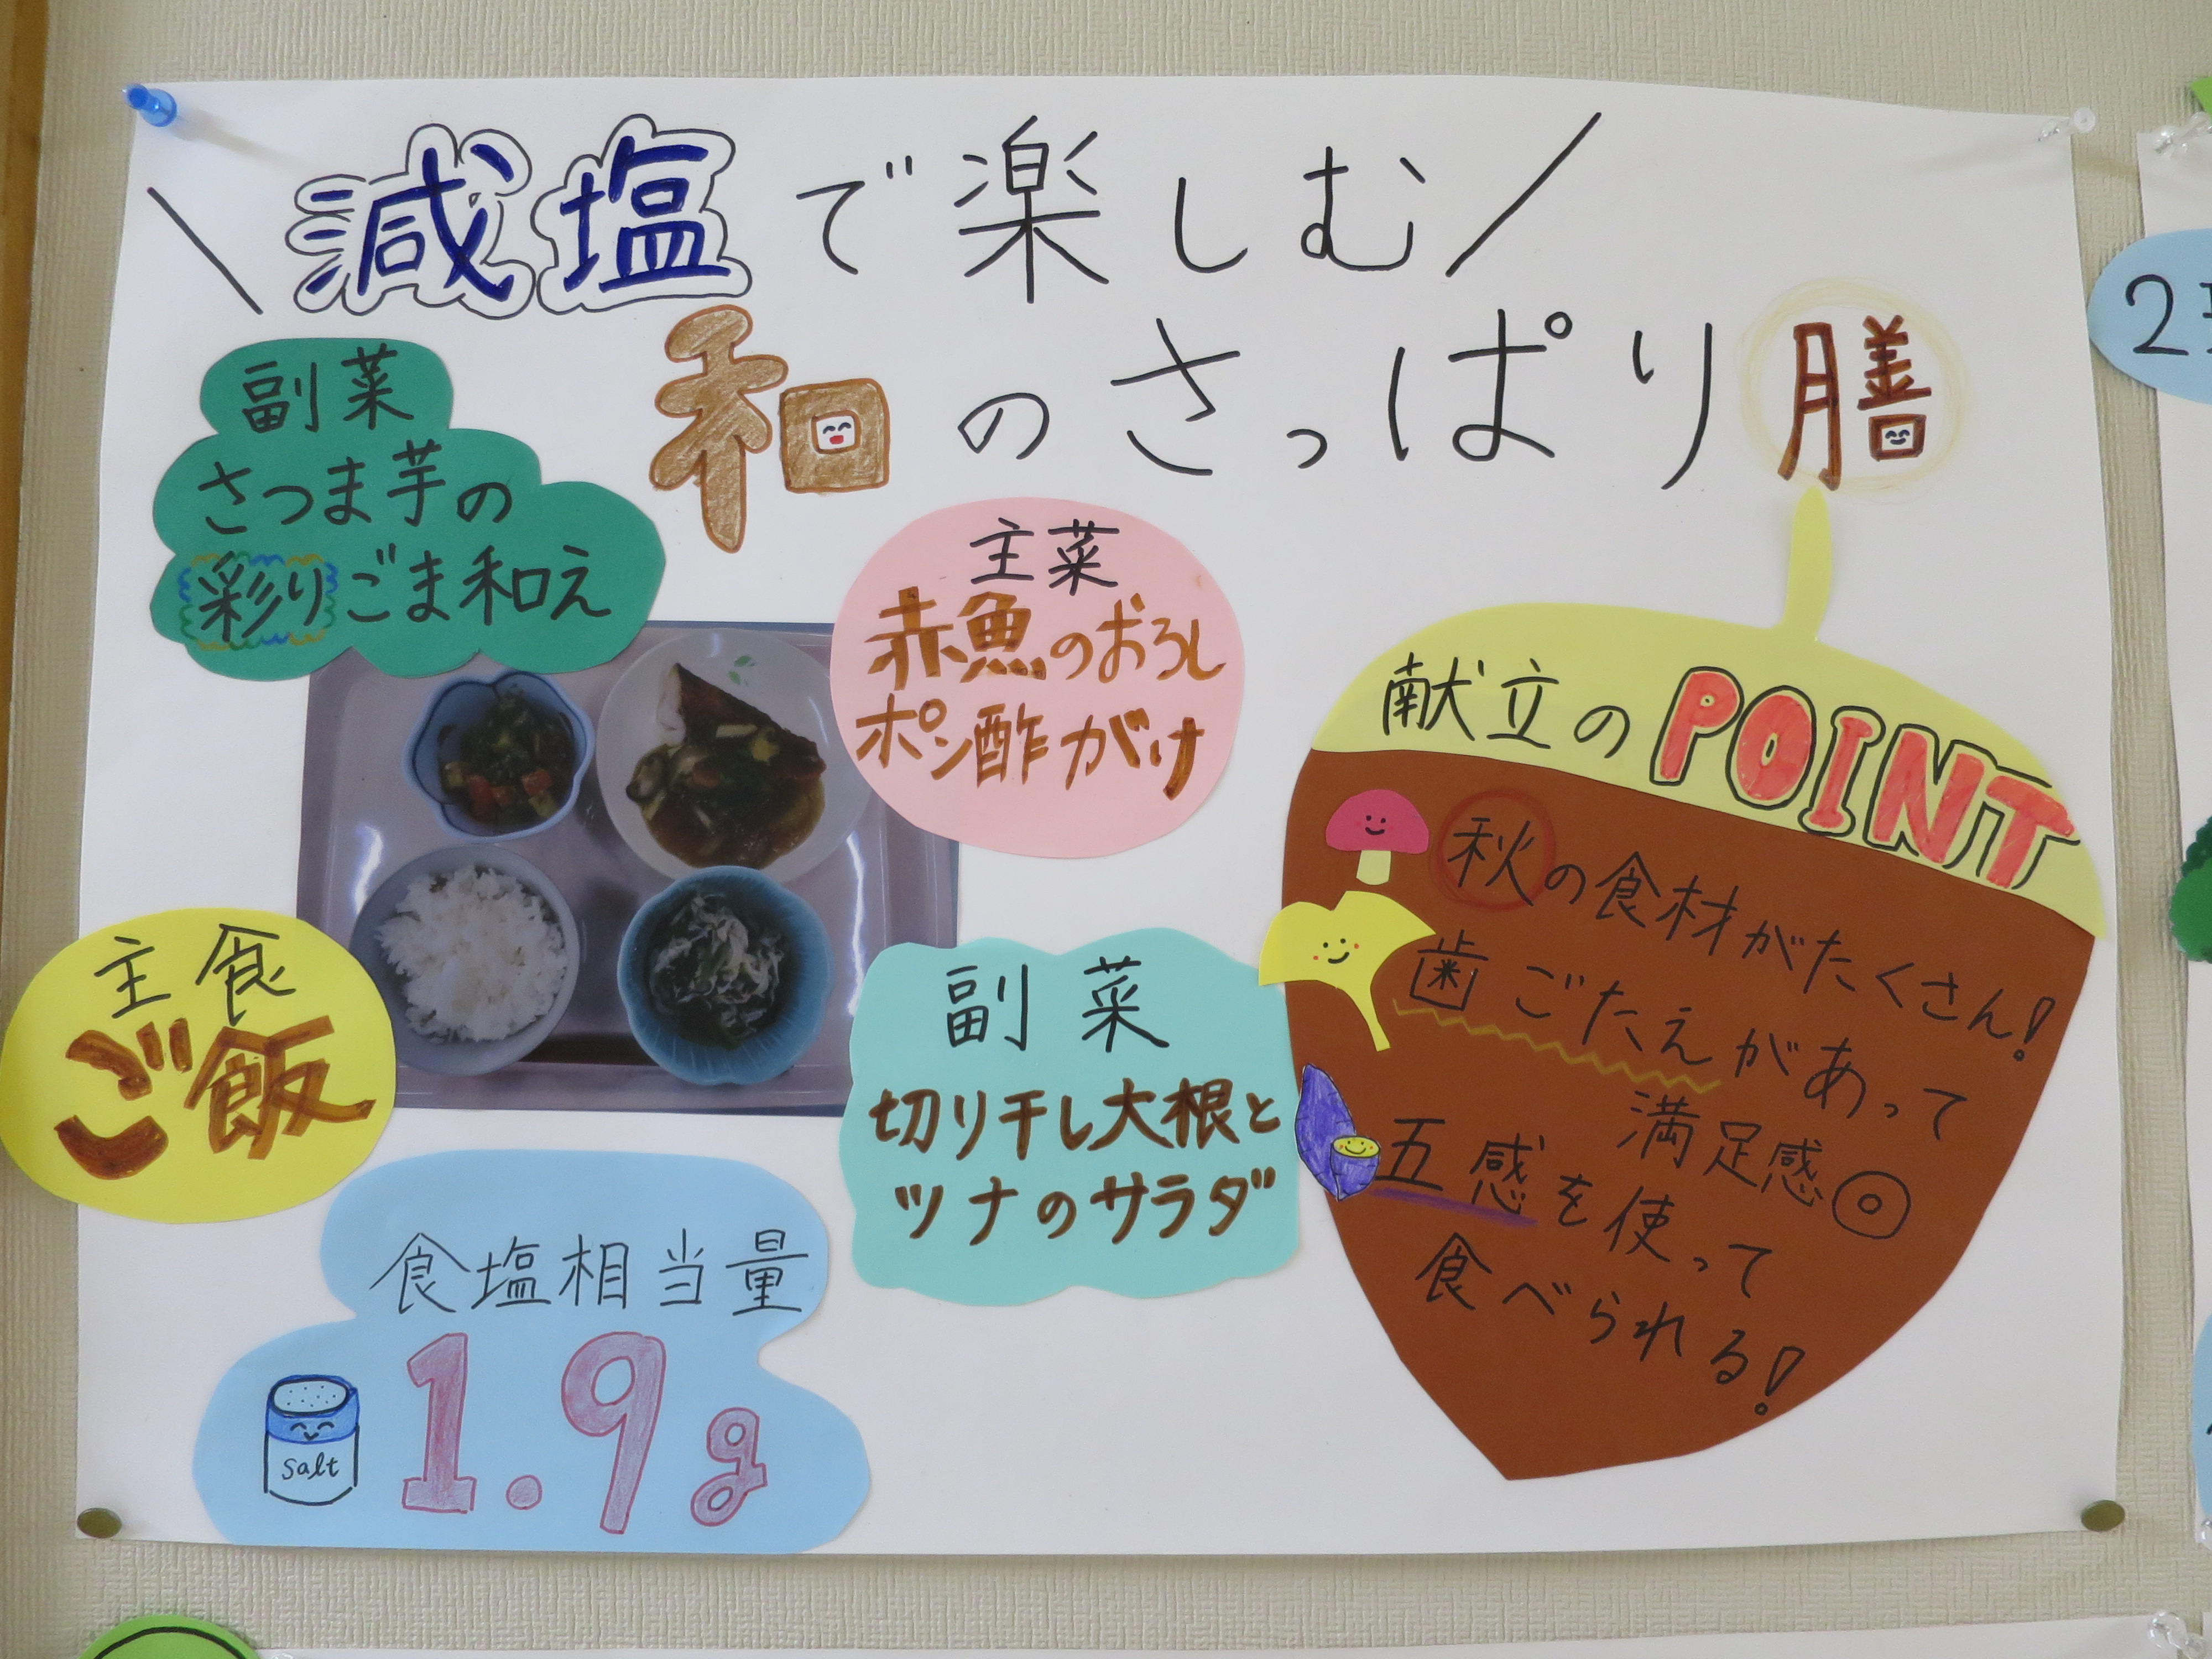 減塩で楽しむ
和のさっぱり膳
副菜
さつま芋の
彩りごま和え
主菜
赤魚のおろし
ポン酢がけ
主食
ご飯
副菜
切り干し大根と
ツナのサラダ
食塩相当量
1.9g
salt
献立のPOINT
秋の食材がたくさん!
歯ごたえがあって
満足感◎
五感を使って
食べられる!
2